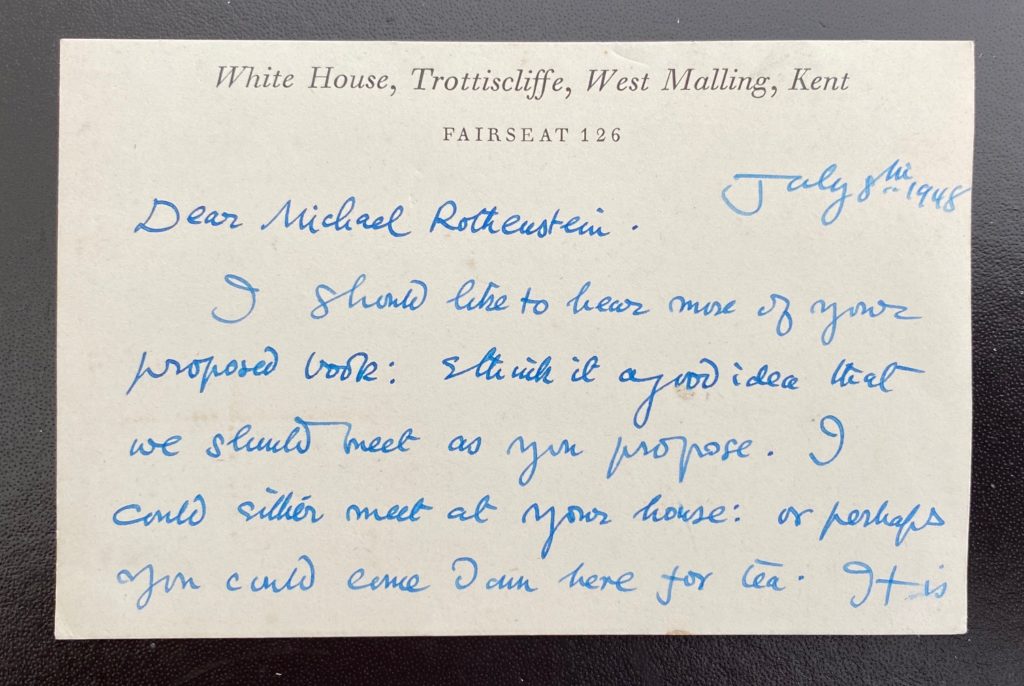 White House, Trottiscliffe, West Malling, Kent
FAIRSEAT 126
July 8th 1948
Dear Michael Rothenstein.
I should like to hear more of your
proposed book: I think it a good idea that
we should meet as you propose. I
could either meet at your house: or perhaps
you could come down here for tea. It is